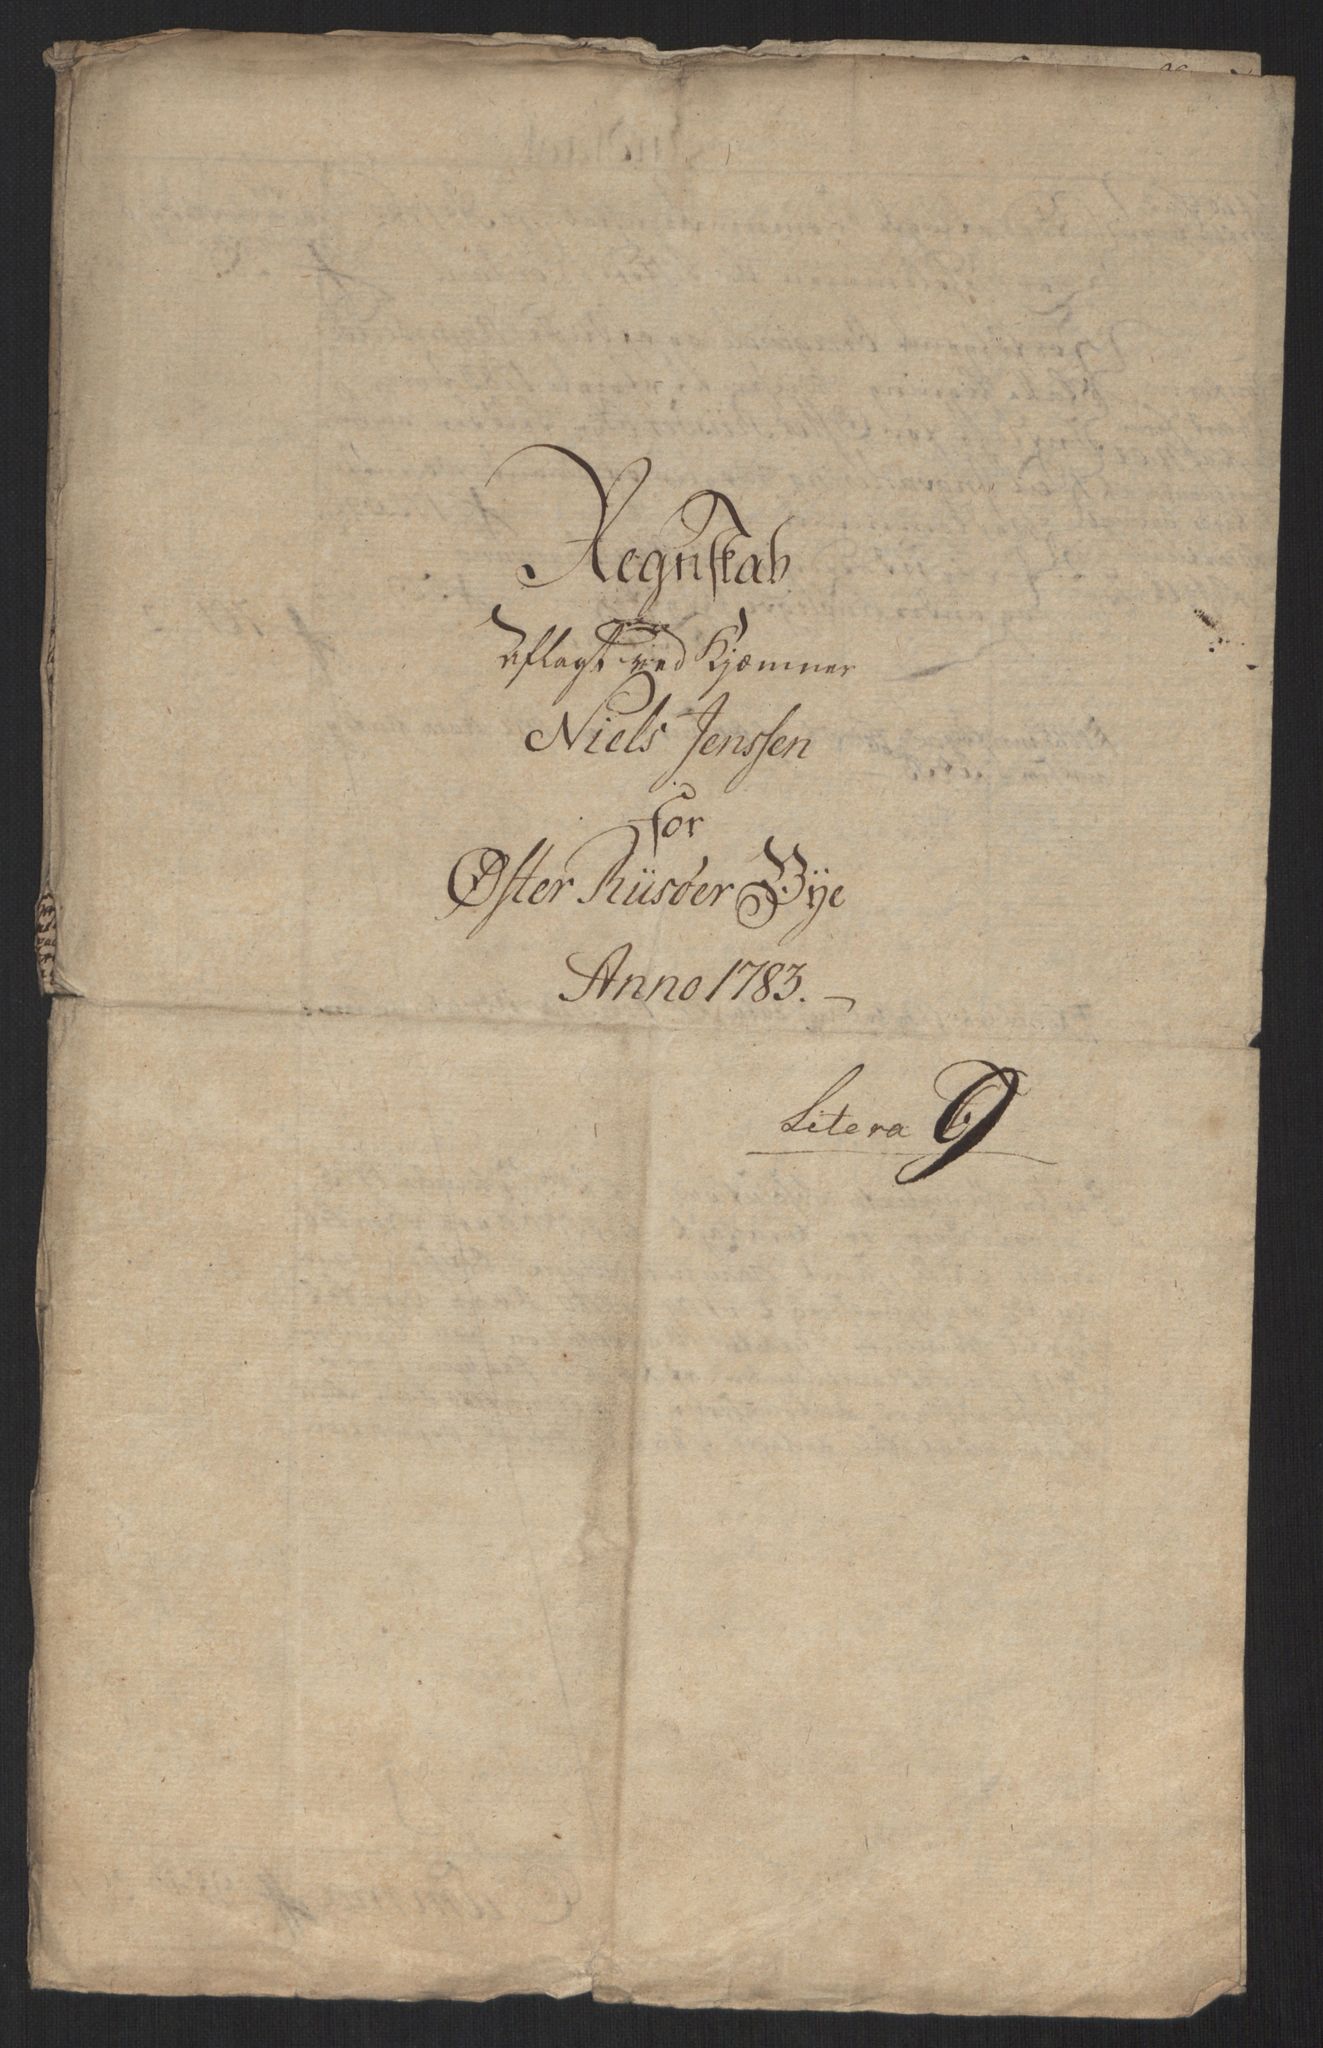 Regnskab
aflagt ved Kjæmner
Niels Jenssen
for
Øster Riisöer Bÿe
Anno 1783.
Litera